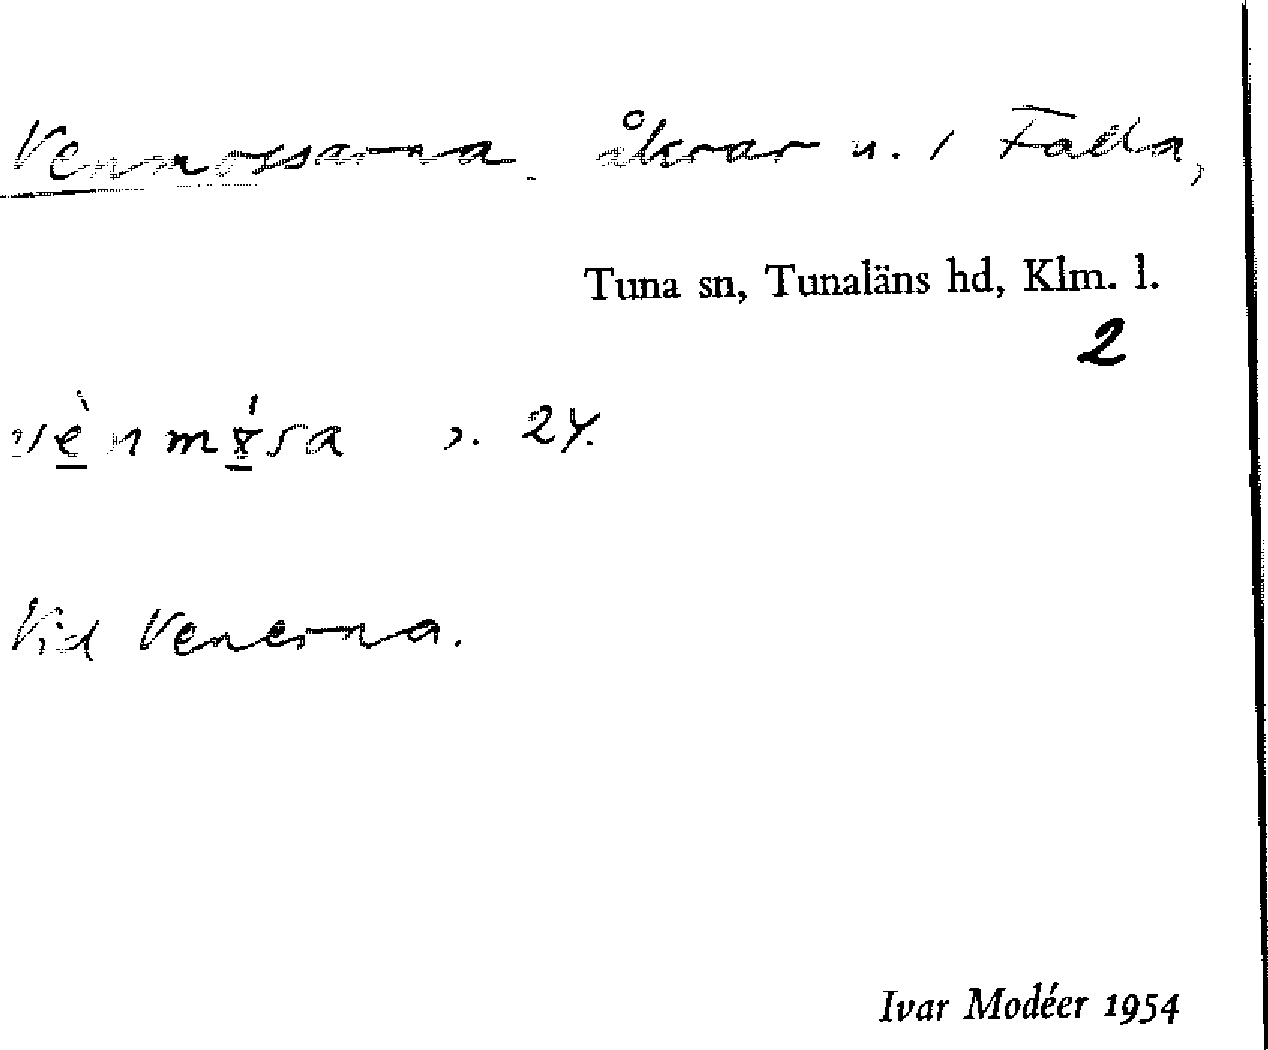 Venmosserna. åkrar u. / Falla,
Tuna sn, Tunaläns hd, Klm. l.
2
s. 24.
Vid Venerna.
Ivar Modéer 1954